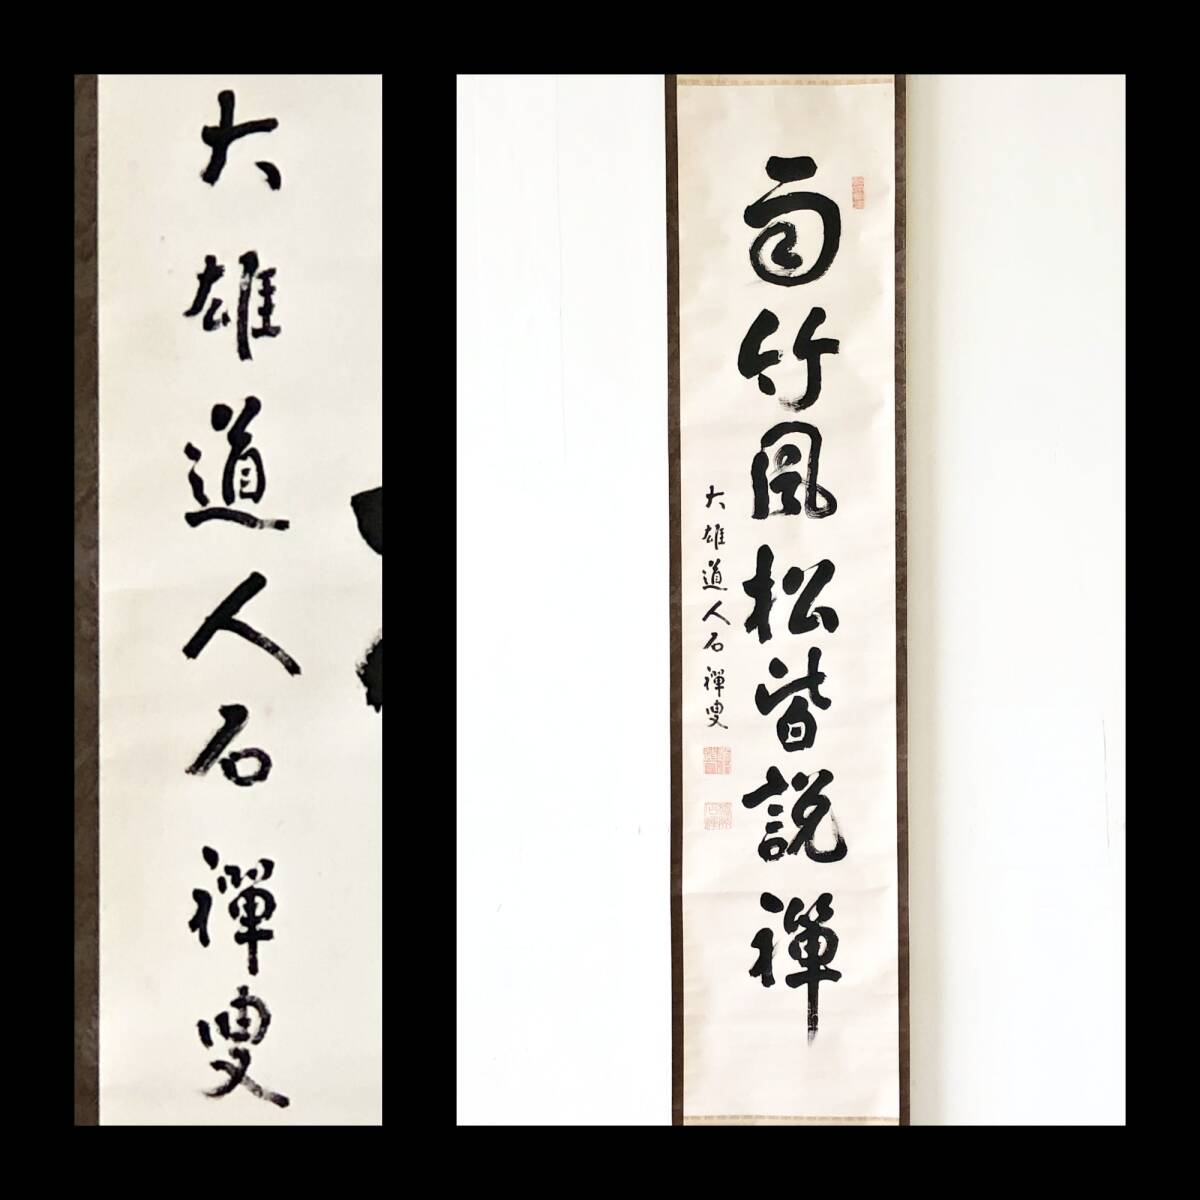 大雄道人石禅叟
雨竹風松皆説禅
大雄道人石禅叟